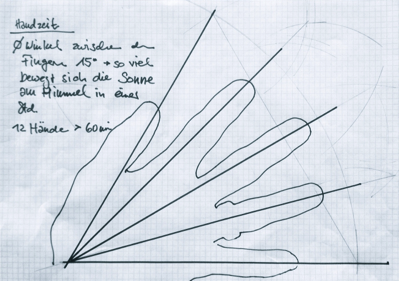 Handzeit
Ø Winkel zwischen den
Fingern 15° → so viel
bewegt sich die Sonne
am Himmel in einer
Std
12 Hände > 60 min